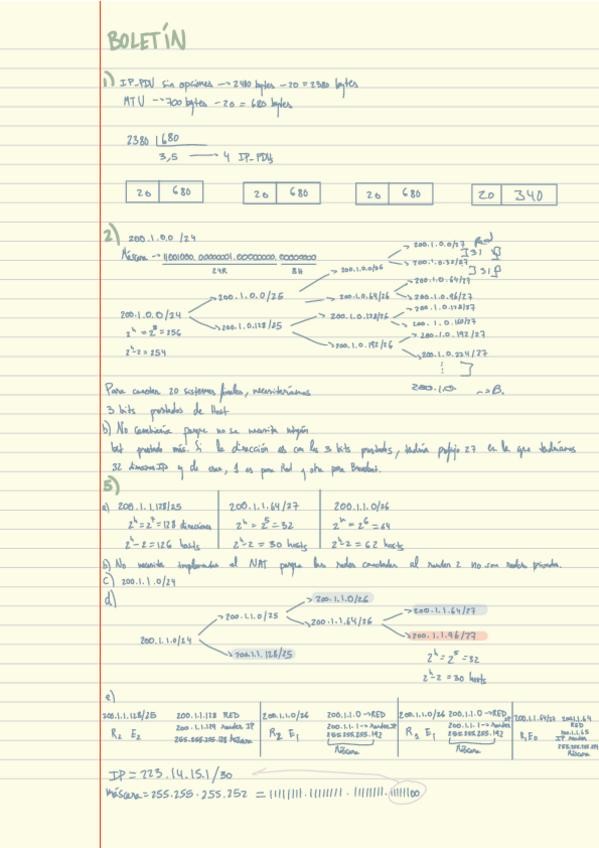 BOLETÍN
1) IP-PDU sin opciones → 2400 bytes - 20 = 2380 bytes
MTU → 700 bytes - 20 = 680 bytes
2380 | 680
3,5 → 4 IP-PDUs
20 | 680 20 | 680 20 | 680 20 | 340
2) 200.1.0.0 /24
Máscara → 11001000.00000001.00000000.00000000
24R 8H
200.1.0.0/24
2^h = 2^8 = 256
2^h-2 = 254
200.1.0.0/25
200.1.0.128/25
200.1.0.0/26
200.1.0.64/26
200.1.0.128/26
200.1.0.192/26
200.1.0.0/27 Red
200.1.0.32/27
200.1.0.64/27
200.1.0.96/27
200.1.0.128/27
200.1.0.160/27
200.1.0.192/27
200.1.0.224/27
Para conectar 20 sistemas finales, necesitaríamos
3 bits prestados de Host
b) No cambiaría porque no se necesita ningún
bit prestado más. Si la dirección es con los 3 bits prestados, tendría prefijo 27 en la que tendríamos
32 direcciones IP y de esas, 1 es para Red y otra para Broadcast.
5)
a) 200.1.1.128/25 200.1.1.64/27 200.1.1.0/26
2^h = 2^7 = 128 direcciones 2^h = 2^5 = 32 2^h = 2^6 = 64
2^h-2 = 126 hosts 2^h-2 = 30 hosts 2^h-2 = 62 hosts
b) No necesita implementar el NAT porque las redes conectadas al router 2 no son redes privadas.
c) 200.1.1.0/24
d)
200.1.1.0/24
200.1.1.0/25
200.1.1.128/25
200.1.1.0/26
200.1.1.64/26
200.1.1.64/27
200.1.1.96/27
2^h = 2^5 = 32
2^h-2 = 30 hosts
e)
200.1.1.128/25 200.1.1.128 RED
200.1.1.129 router IP
R2 E2 255.255.255.128 Máscara
200.1.1.0/26 200.1.1.0 → RED
200.1.1.1 → router IP
R2 E1 255.255.255.192
Máscara
200.1.1.0/26 200.1.1.0 → RED
200.1.1.1 → router IP
E1 255.255.255.192
Máscara
200.1.1.64/27 200.1.1.64
RED
200.1.1.65
R1 E0 IP router
Máscara
IP = 223.14.15.1/30
Máscara = 255.255.255.252 = 11111111.11111111.11111111.11111100